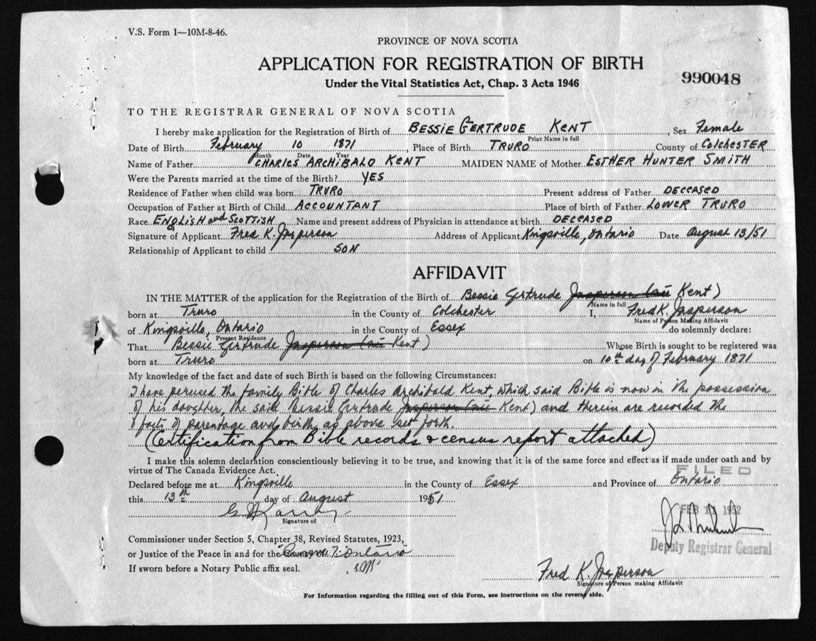 V.S. Form 1—10M-8-46.
PROVINCE OF NOVA SCOTIA
APPLICATION FOR REGISTRATION OF BIRTH
990048
Under the Vital Statistics Act, Chap. 3 Acts 1946
TO THE REGISTRAR GENERAL OF NOVA SCOTIA
I hereby make application for the Registration of Birth of BESSIE GERTRUDE KENT, Sex Female
Print Name in full
Date of Birth February 10 1871, Place of Birth TRURO County of COLCHESTER
Month Date Year
Name of Father CHARLES ARCHIBALD KENT MAIDEN NAME of Mother ESTHER HUNTER SMITH
Were the Parents married at the time of the Birth? YES
Residence of Father when child was born TRURO Present address of Father DECEASED
Occupation of Father at Birth of Child ACCOUNTANT Place of birth of Father LOWER TRURO
Race ENGLISH and SCOTTISH Name and present address of Physician in attendance at birth DECEASED
Signature of Applicant Fred K. Jasperson Address of Applicant Kingsville, Ontario Date August 13/51
Relationship of Applicant to child SON
AFFIDAVIT
IN THE MATTER of the application for the Registration of the Birth of Bessie Gertrude Jasperson (née Kent)
Name in full
born at Truro in the County of Colchester I, Fred K. Jasperson
Name of Person Making Affidavit
of Kingsville, Ontario in the County of Essex do solemnly declare:
Present Residence
That Bessie Gertrude Jasperson (née Kent) Whose Birth is sought to be registered was
born at Truro on 10th day of February 1871
My knowledge of the fact and date of such Birth is based on the following Circumstances:
I have perused the family Bible of Charles Archibald Kent, which said Bible is now in the possession
of his daughter, the said Bessie Gertrude Jasperson (née Kent) and therein are recorded the
facts of parentage and birth as above set forth.
(Certification from Bible records & census report attached)
I make this solemn declaration conscientiously believing it to be true, and knowing that it is of the same force and effect as if made under oath and by
virtue of The Canada Evidence Act.
FILED
Declared before me at Kingsville in the County of Essex and Province of Ontario
this 13th day of August 1951
FEB 1952
Signature of
Deputy Registrar General
Commissioner under Section 5, Chapter 38, Revised Statutes, 1923,
or Justice of the Peace in and for the Ontario
If sworn before a Notary Public affix seal.
Fred K. Jasperson
Signature of Person making Affidavit
For Information regarding the filling out of this Form, see instructions on the reverse side.